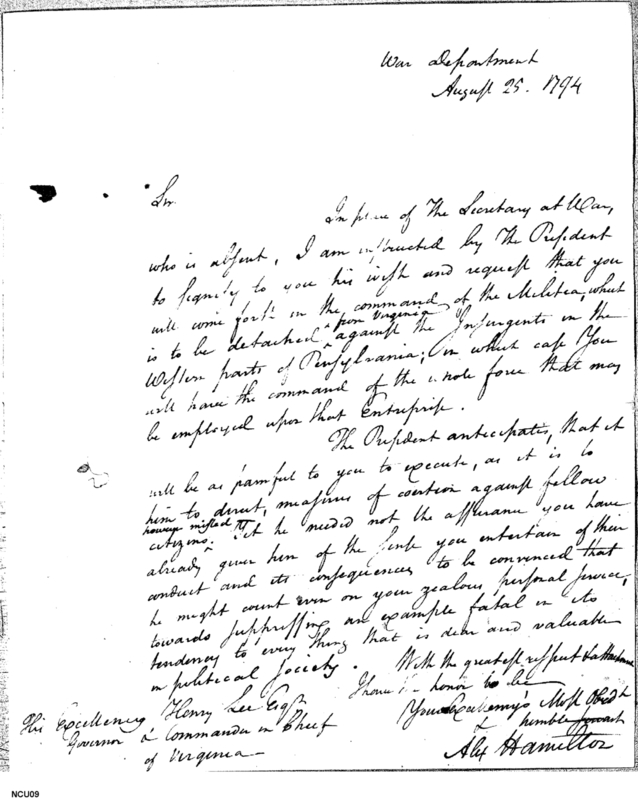 War Department
August 25. 1794
Sir
In place of The Secretary at War,
who is absent, I am instructed by The President
to signify to you his wish and request that you
will come forth in the command of the Militia, which
is to be detached from Virginia against the Insurgents in the
Western parts of Pensylvania; in which case You
will have the command of the whole force that may
be employed upon that Enterprise.
The President anticipates, that it
will be as painful to you to execute, as it is to
him to direct, measures of coertion against fellow
citizens however misled. Yet he needed not the assurance you have
already given him of the sense you entertain of their
conduct and its consequences to be convinced that
he might count even on your zealous personal service,
towards suppressing an example fatal in its
tendency to every thing that is dear and valuable
in political society.
With the greatest respect & attachment
I have the honor to be
Your Excellency's Most Obedt
& humble servant
Alex Hamilton
His Excellency Henry Lee Esqr
Governor & Commander in Chief
of Virginia
NCU09